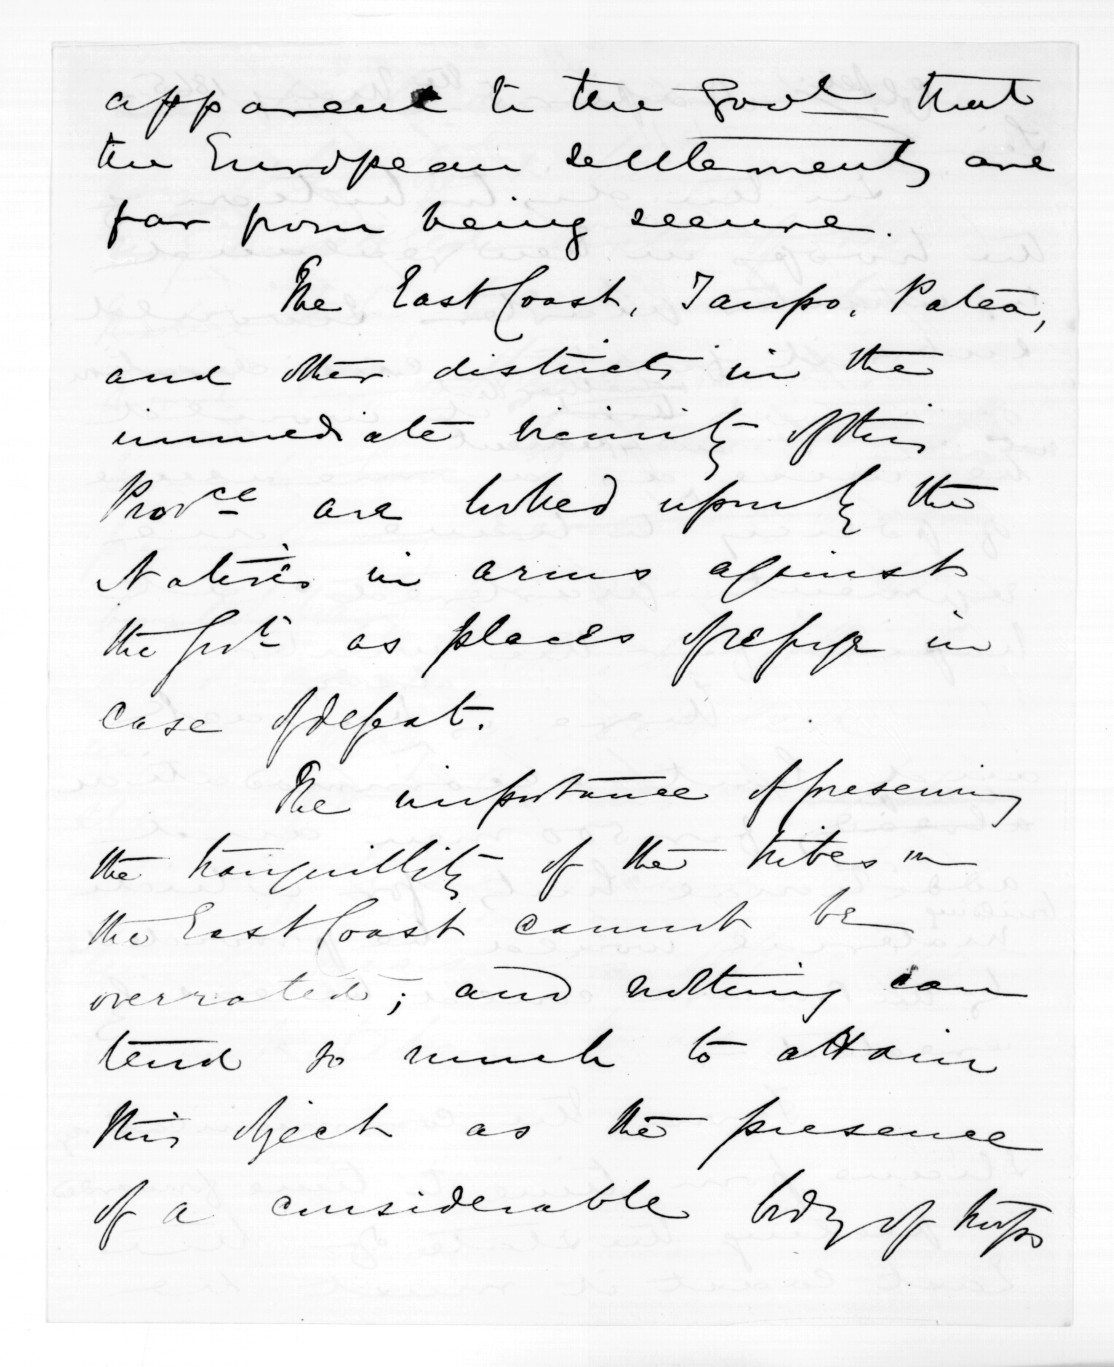 apparent to the Govt that
the European settlements are
far from being secure.
The East Coast, Taupo, Patea,
and other districts in the
immediate vicinity of this
Provce are looked upon by the
Natives in arms against
the Govt as places of refuge in
case of defeat.
The importance of preserving
the tranquillity of the tribes in
the East Coast cannot be
overrated; and nothing can
tend so much to attain
this object as the presence
of a considerable body of troops